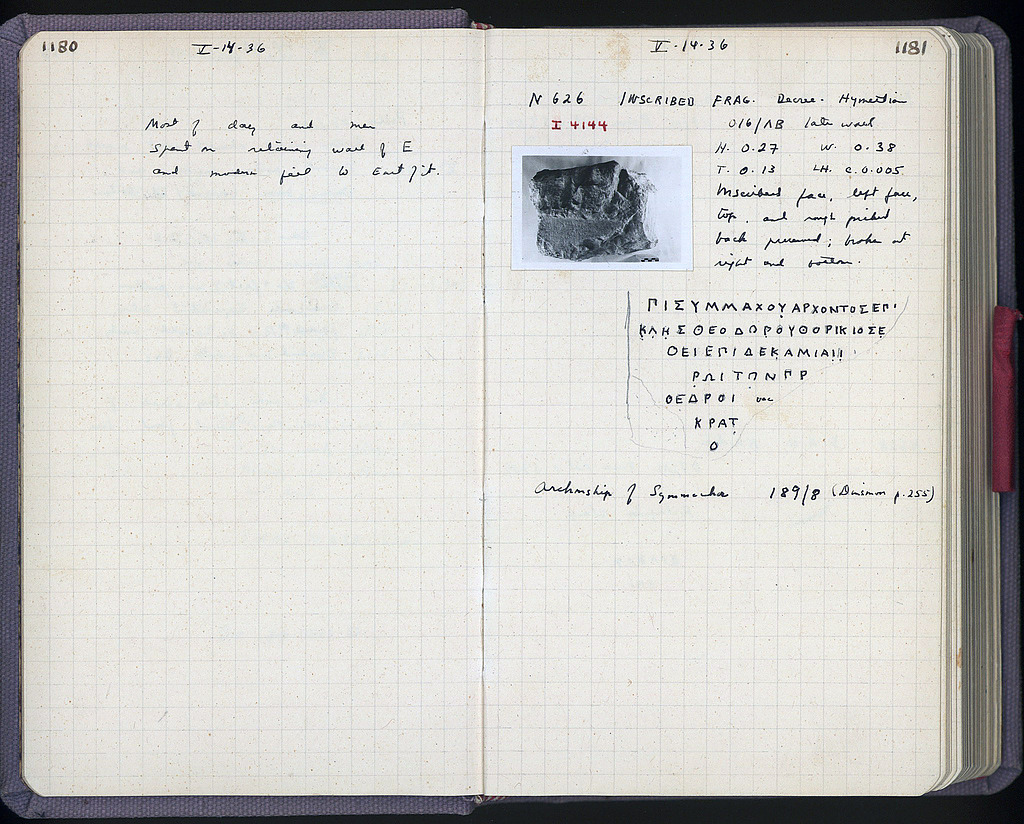 1180
V-14-36
Most of day and men
spent on retaining wall of E
and modern fill to East of it.
V-14-36
1181
N 626 INSCRIBED FRAG. Decree. Hymettian
I 4144
O16/ΛB late wall
H. 0.27 W. 0.38
T. 0.13 LH. c. 0.005
Inscribed face, left face,
top, and rough picked
back preserved; broken at
right and bottom.
ΠΙΣΥΜΜΑΧΟΥΑΡΧΟΝΤΟΣΕΠΙ
ΚΛΗΣΘΕΟΔΩΡΟΥΘΟΡΙΚΙΟΣΕ
ΘΕΙΕΠΙΔΕΚΑΜΙΑΙΙ
ΡΩΙΤΩΝΠΡ
ΟΕΔΡΟΙ vac
ΚΡΑΤ
Ο
Archonship of Symmachos 189/8 (Dinsmoor p. 255)